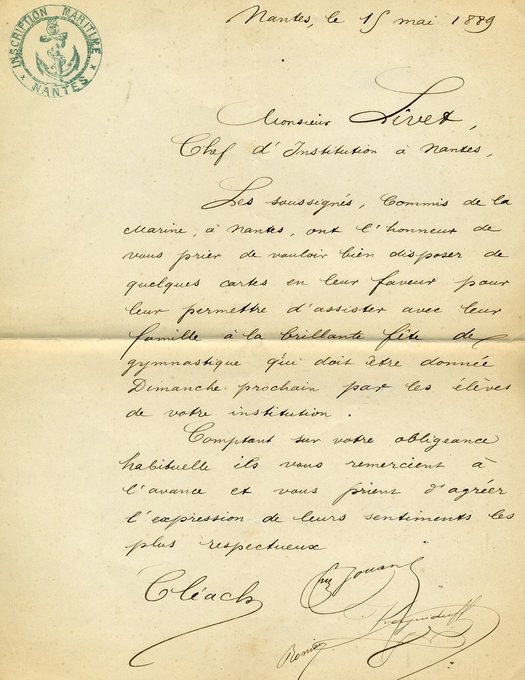 INSCRIPTION MARITIME
NANTES
Nantes, le 15 mai 1889
Monsieur Livet,
Chef d'Institution à Nantes,
Les soussignés, Commis de la
Marine, à Nantes, ont l'honneur de
vous prier de vouloir bien disposer de
quelques cartes en leur faveur pour
leur permettre d'assister avec leur
famille à la brillante fête de
gymnastique qui doit être donnée
Dimanche prochain par les élèves
de votre institution.
Comptant sur votre obligeance
habituelle ils vous remercient à
l'avance et vous prient d'agréer
l'expression de leurs sentiments les
plus respectueux
Cléach
Jouan